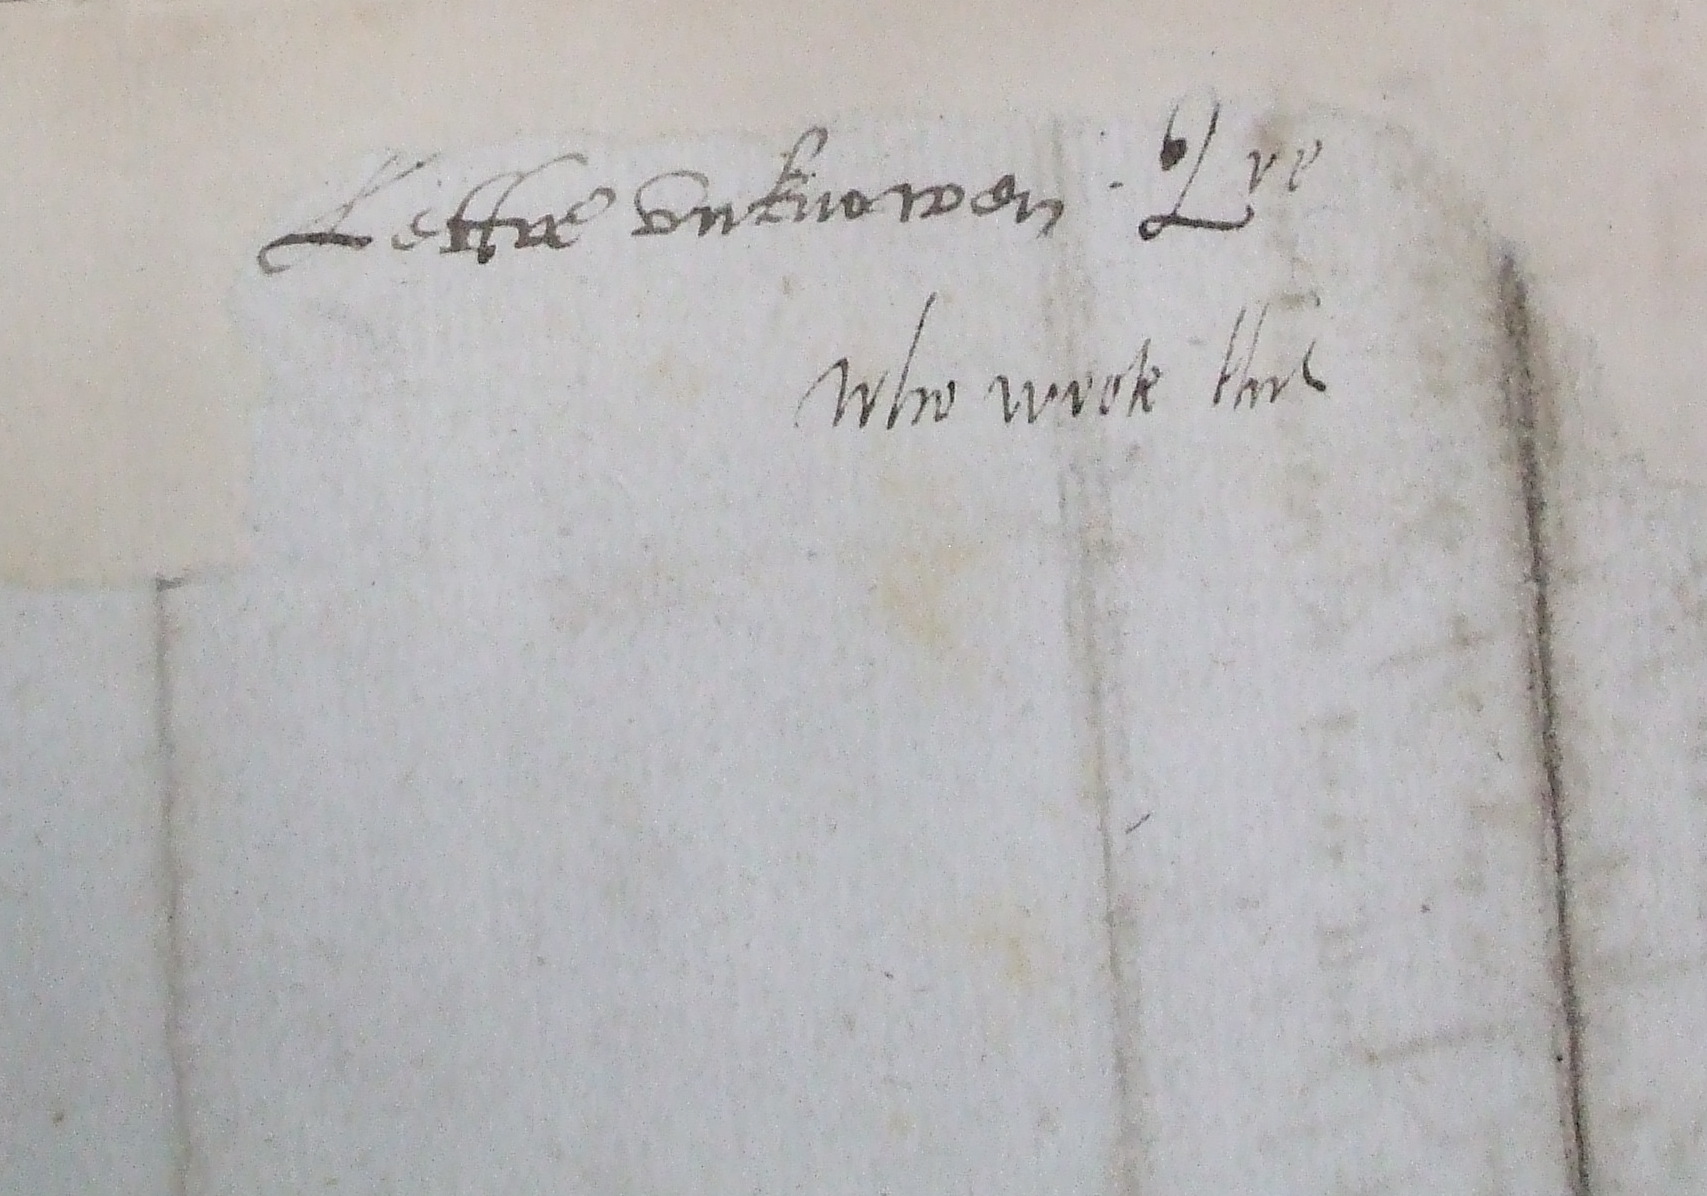 Lettre vnknowen. Lre
who wrok this